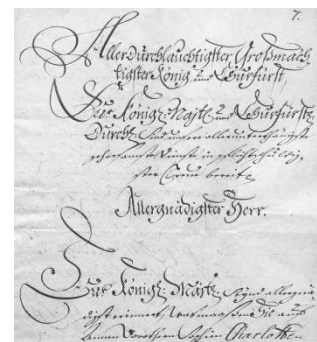 7.
Allerdurchlauchtigster Großmäch
tigster König und Churfürst
Eure Königl: Majtt: und Churfürstl:
Durchl: sind unsere allerunterthänigste
gehorsamste Dienste in pflichtschuldig
ster Treue bereit
Allergnädigster Herr.
Eure Königl: Majtt: allergnä
digst erinnert, was maaßen Sie auf
Dorothea Sophien Charlotten